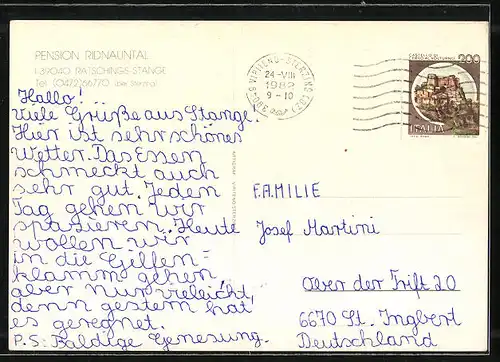 PENSION RIDNAUNTAL
I-39040 RATSCHINGS-STANGE
Tel. (0472) 66770 (bei Sterzing)
Hallo!
Viele Grüße aus Stange.
Hier ist sehr schönes
Wetter. Das Essen
schmeckt auch
sehr gut. Jeden
Tag gehen wir
spazieren. Heute
wollen wir
in die Gillen-
klamm gehen
aber nur vieleicht,
denn gestern hat
es geregnet.
P.S: Baldige Genesung.
VIPITENO-STERZING
24-VIII
1982
9-10
200
ITALIA
FAMILIE
Josef Martini
Ober der Trift 20
6670 St. Ingbert
Deutschland